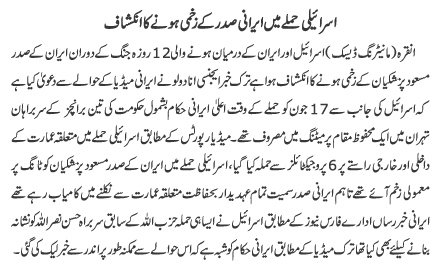 اسرائیلی حملے میں ایرانی صدر کے زخمی ہونے کا انکشاف
انقرہ (مانیٹرنگ ڈیسک) اسرائیل اور ایران کے درمیان ہونے والی 12 روزہ جنگ کے دوران ایران کے صدر
مسعود پزشکیان کے زخمی ہونے کا انکشاف ہوا ہے ترک خبر ایجنسی انادولو نے ایرانی میڈیا کے حوالے سے دعویٰ کیا ہے
کہ اسرائیل کی جانب سے 17 جون کو حملے کے وقت اعلیٰ ایرانی حکام بشمول حکومت کی تین برانچز کے سربراہان
تہران میں ایک محفوظ مقام پر میٹنگ میں مصروف تھے۔ میڈیا رپورٹس کے مطابق اسرائیلی حملے میں متعلقہ عمارت کے
داخلی اور خارجی راستے پر 6 پروجیکٹائلز سے حملہ کیا گیا، اسرائیلی حملے میں ایران کے صدر مسعود پزشکیان کو ٹانگ پر
معمولی زخم آئے تھے تاہم ایرانی صدر سمیت تمام عہدیدار بحفاظت متعلقہ عمارت سے نکلنے میں کامیاب رہے تھے
ایرانی خبر رساں ادارے فارس نیوز کے مطابق اسرائیل نے ایسا ہی حملہ حزب اللہ کے سابق سربراہ حسن نصر اللہ کو نشانہ
بنانے کیلئے بھی کیا تھا ترک میڈیا کے مطابق ایرانی حکام کو شبہ ہے کہ اس حوالے سے ممکنہ طور پر اندر سے خبر لیک کی گئی۔